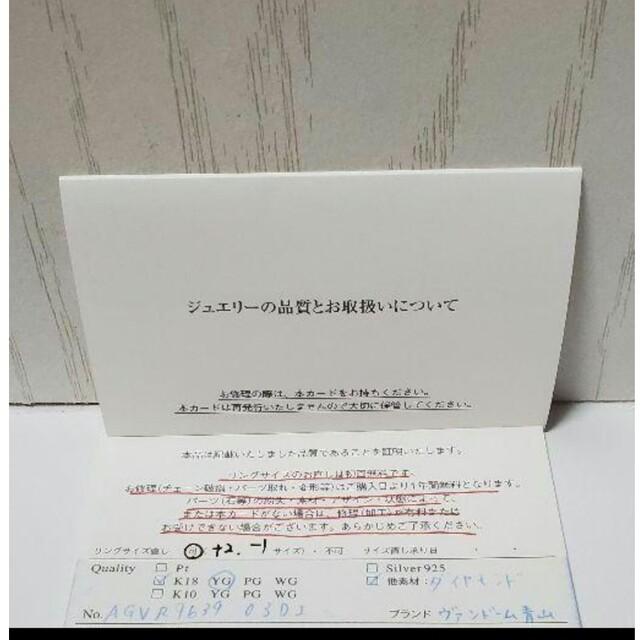 ジュエリーの品質とお取扱いについて
お修理の際は、本カードをお持ちください。
本カードは再発行いたしませんので大切に保管してください。
本品は記載いたしました品質であることを証明いたします。
リングサイズのお直しは初回無料です。
お修理(チェーン破損・パーツ取れ・変形等)はご購入日より1年間無料となります。
パーツ(石等)の紛失・素材・デザイン・状態によって、
または本カードがない場合は、修理(加工)が有料または
お受けできない場合がございます。あらかじめご了承ください。
リングサイズ直し 可 +2 -1 サイズ)・不可 サイズ直し承り日 ・ ・
Quality Pt Silver925
K18 YG PG WG 他素材：ダイヤモンド
K10 YG PG WG
No. AGVR9639 03DI ブランド ヴァンドーム青山